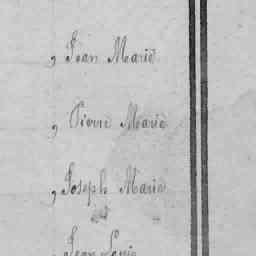 , Jean Marie
, Pierre Marie
, Joseph Marie
, Jean Louis